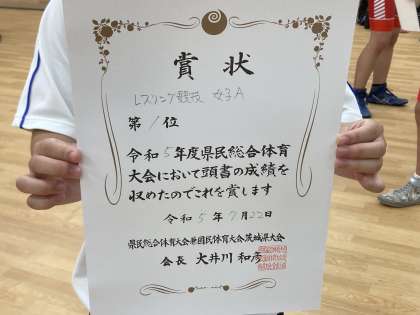 賞状
レスリング競技 女子A
第1位
令和5年度県民総合体育
大会において頭書の成績を
収めたのでこれを賞します
令和5年7月22日
県民総合体育大会兼国民体育大会茨城県大会
会長 大井川和彦